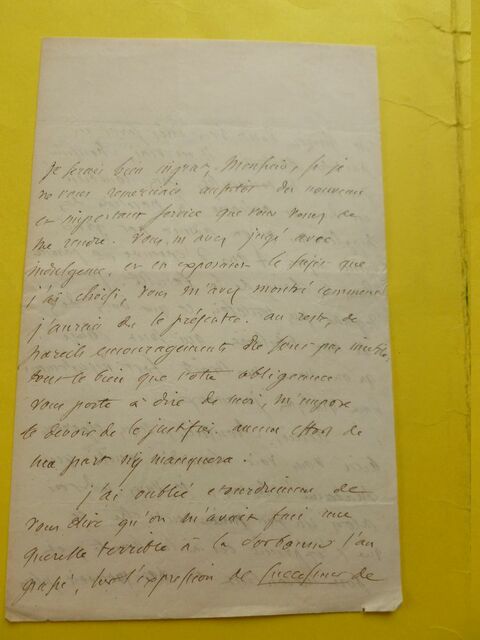 Je serais bien ingrat, Monsieur, si je
ne vous remerciais aussitôt du nouveau
et important service que vous venez de
me rendre. Vous m'avez jugé avec
indulgence, et en exposant le sujet que
j'ai choisi, vous m'avez montré comment
j'aurais dû le présenter. au reste, de
pareils encouragements ne sont pas inutiles,
tout le bien que votre obligeance
vous porte à dire de moi, m'impose
le devoir de le justifier. aucun effort de
ma part n'y manquera.
j'ai oublié étourdiment de
vous dire qu'on m'avait fait une
querelle terrible à la Sorbonne l'an
passé, sur l'expression de Successeurs de